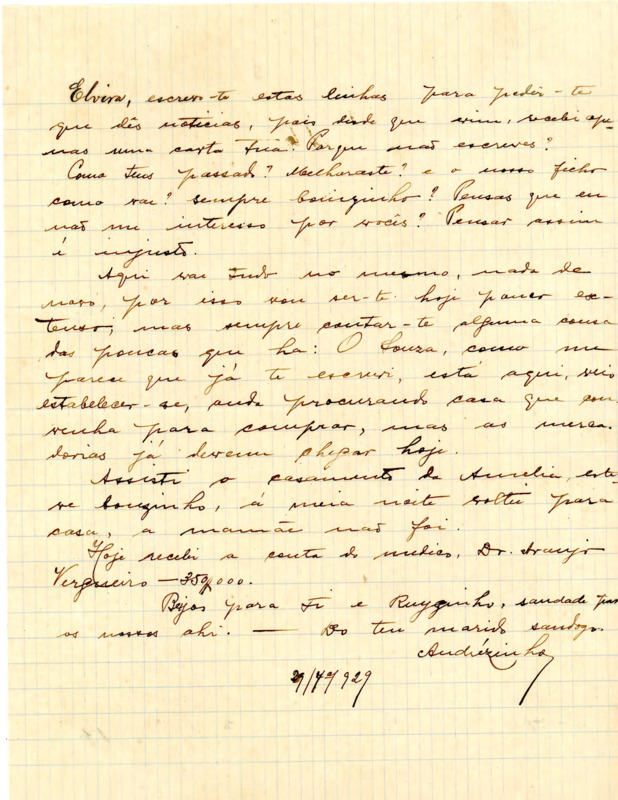 Elvira, escrevo-te estas linhas para pedir-te
que dês noticias, pois desde que vim, recebi ape-
nas uma carta tua. Porque não escreves?
Como tens passado? Melhoraste? e o nosso ficho
como vae? sempre bonzinho? Pensas que eu
não me interesso por vocês? Pensar assim
é injusto.
Aqui vae tudo no mesmo, nada de
novo, por isso vou ser-te hoje pouco ex-
tenso, mas sempre contar-te alguma cousa
das poucas que ha: O Souza, como me
parece que já te escrevi, está aqui, veio
estabelecer-se, anda procurando casa que con-
venha para comprar, mas as merca-
dorias já devem chegar hoje.
Assisti o casamento da Amelia, este-
ve bonzinho, á meia noite voltei para
casa, a mamãe não foi.
Hoje recebi a conta do medico, Dr. Araujo
Vergueiro — 350$000.
Beijos para ti e Ruyzinho, saudade para
os nossos ahi. — Do teu marido saudoso.
Andrézinho
929